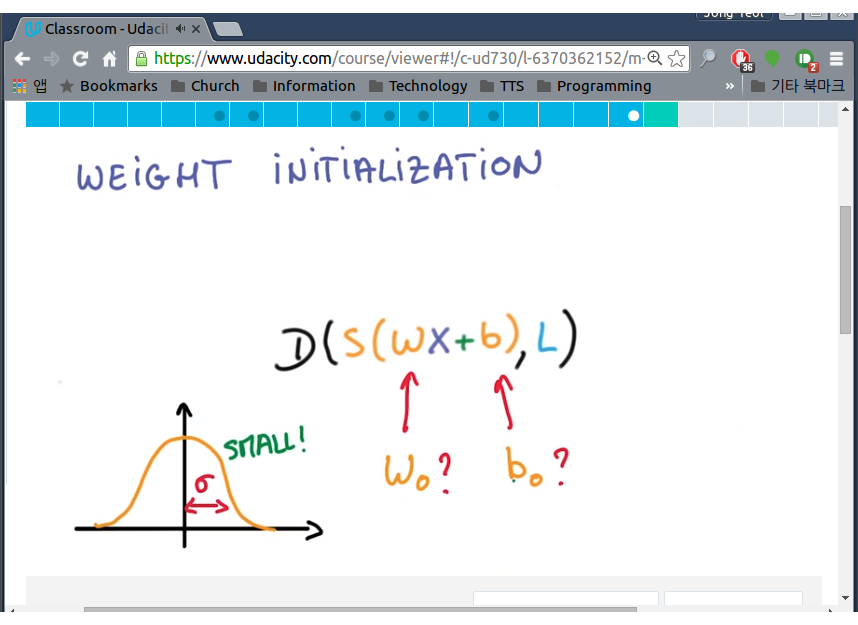 Jong Yeol
Classroom - Udacit
https://www.udacity.com/course/viewer#!/c-ud730/l-6370362152/m-
36
2
앱 Bookmarks Church Information Technology TTS Programming » 기타 북마크
WEiGHT iNiTiALiZATiON
D(S(WX+b),L)
SMALL!
σ
W₀? b₀?